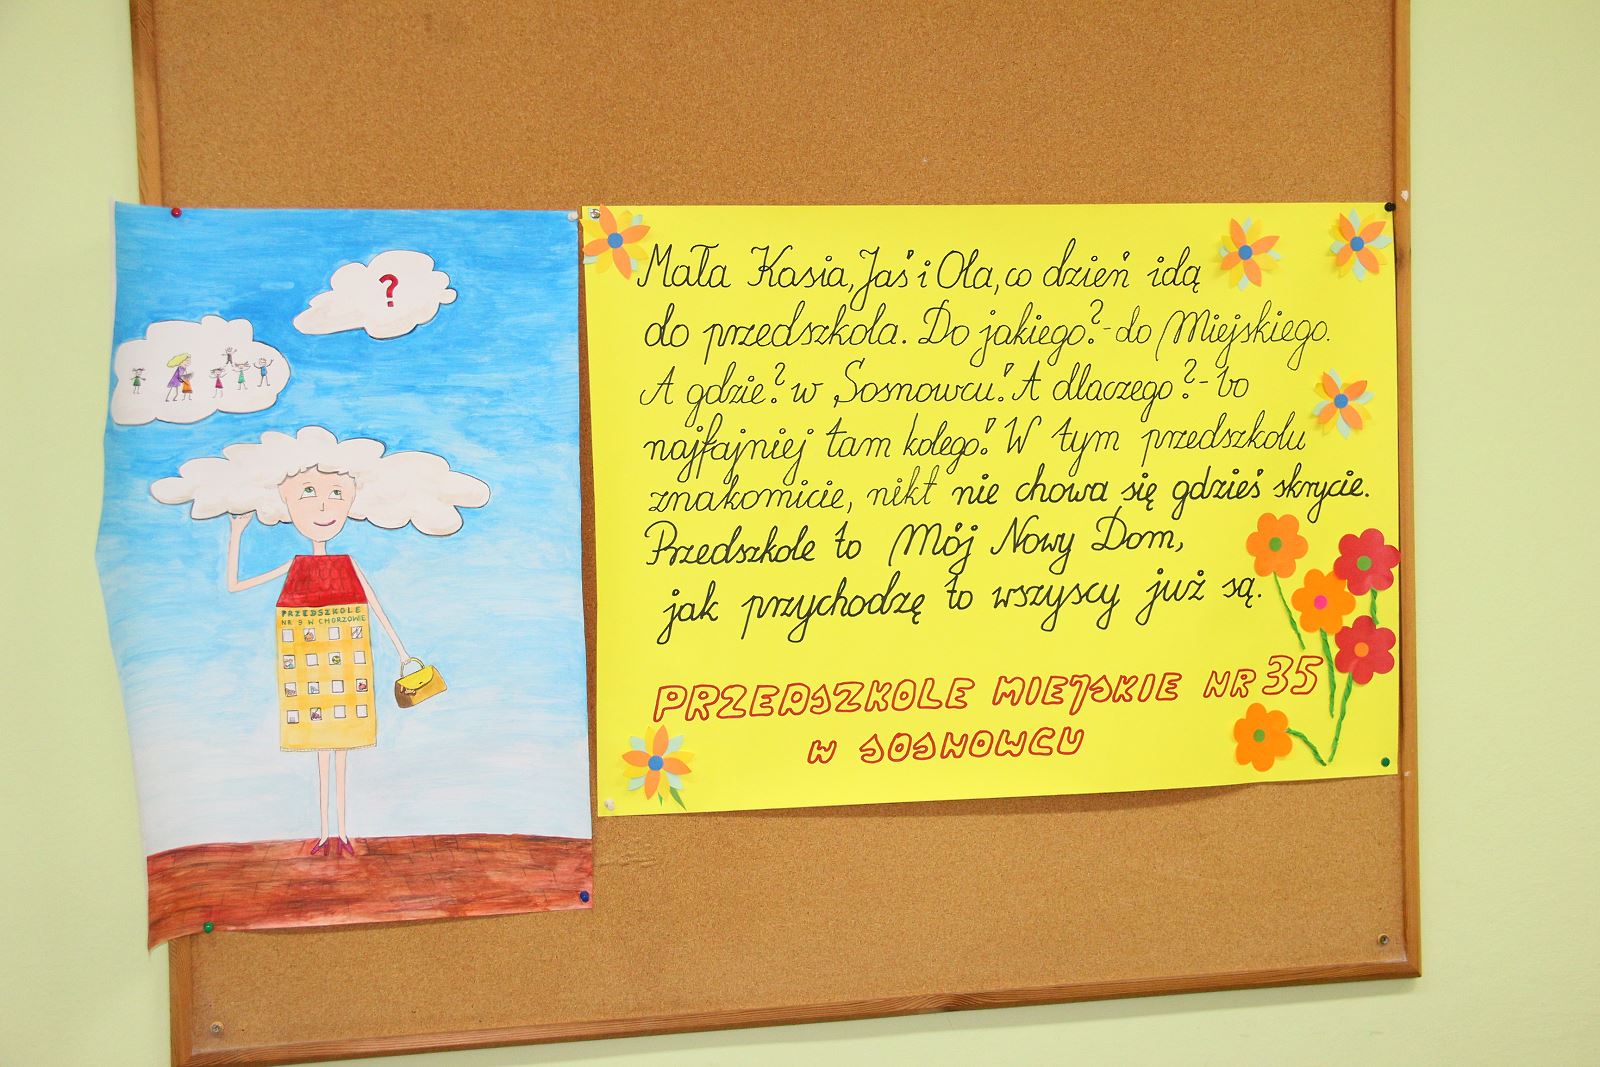 ?
PRZEDSZKOLE
NR 9 W CHORZOWIE
Mała Kasia, Jaś i Ola, co dzień idą
do przedszkola. Do jakiego? - do Miejskiego.
A gdzie? w Sosnowcu! A dlaczego? - bo
najfajniej tam kolego! W tym przedszkolu
znakomicie, nikt nie chowa się gdzieś skrycie.
Przedszkole to Mój Nowy Dom,
jak przychodzę to wszyscy już są.
PRZEDSZKOLE MIEJSKIE NR 35
W SOSNOWCU